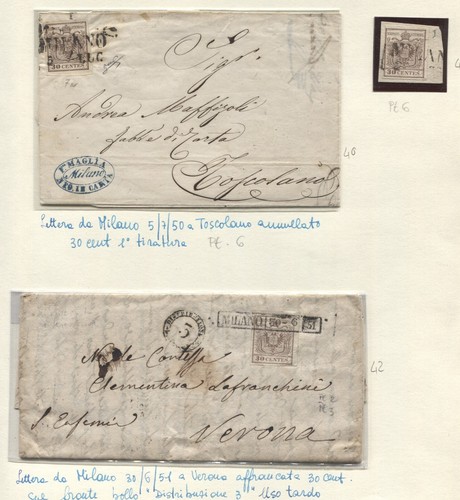 MILANO
5 LUG.
30 CENTES.
Sigr.
Andrea Maffizoli
fabb.e di Carta
Toscolano
F. MAGLIA
Milano
NEG. IN CARTA
40
Lettera da Milano 5/7/50 a Toscolano annullato
30 cent 1ª tiratura Pt. 6
MILANO
30 CENTES.
Pt 6
MILANO 30 6 51
30 CENTES.
3
Nob. Contessa
Clementina Lafranchini
S. Eufemia
Verona
42
Lettera da Milano 30/6/51 a Verona affrancata 30 cent.
sul fronte bollo "Distribuzione 3" Uso tardo